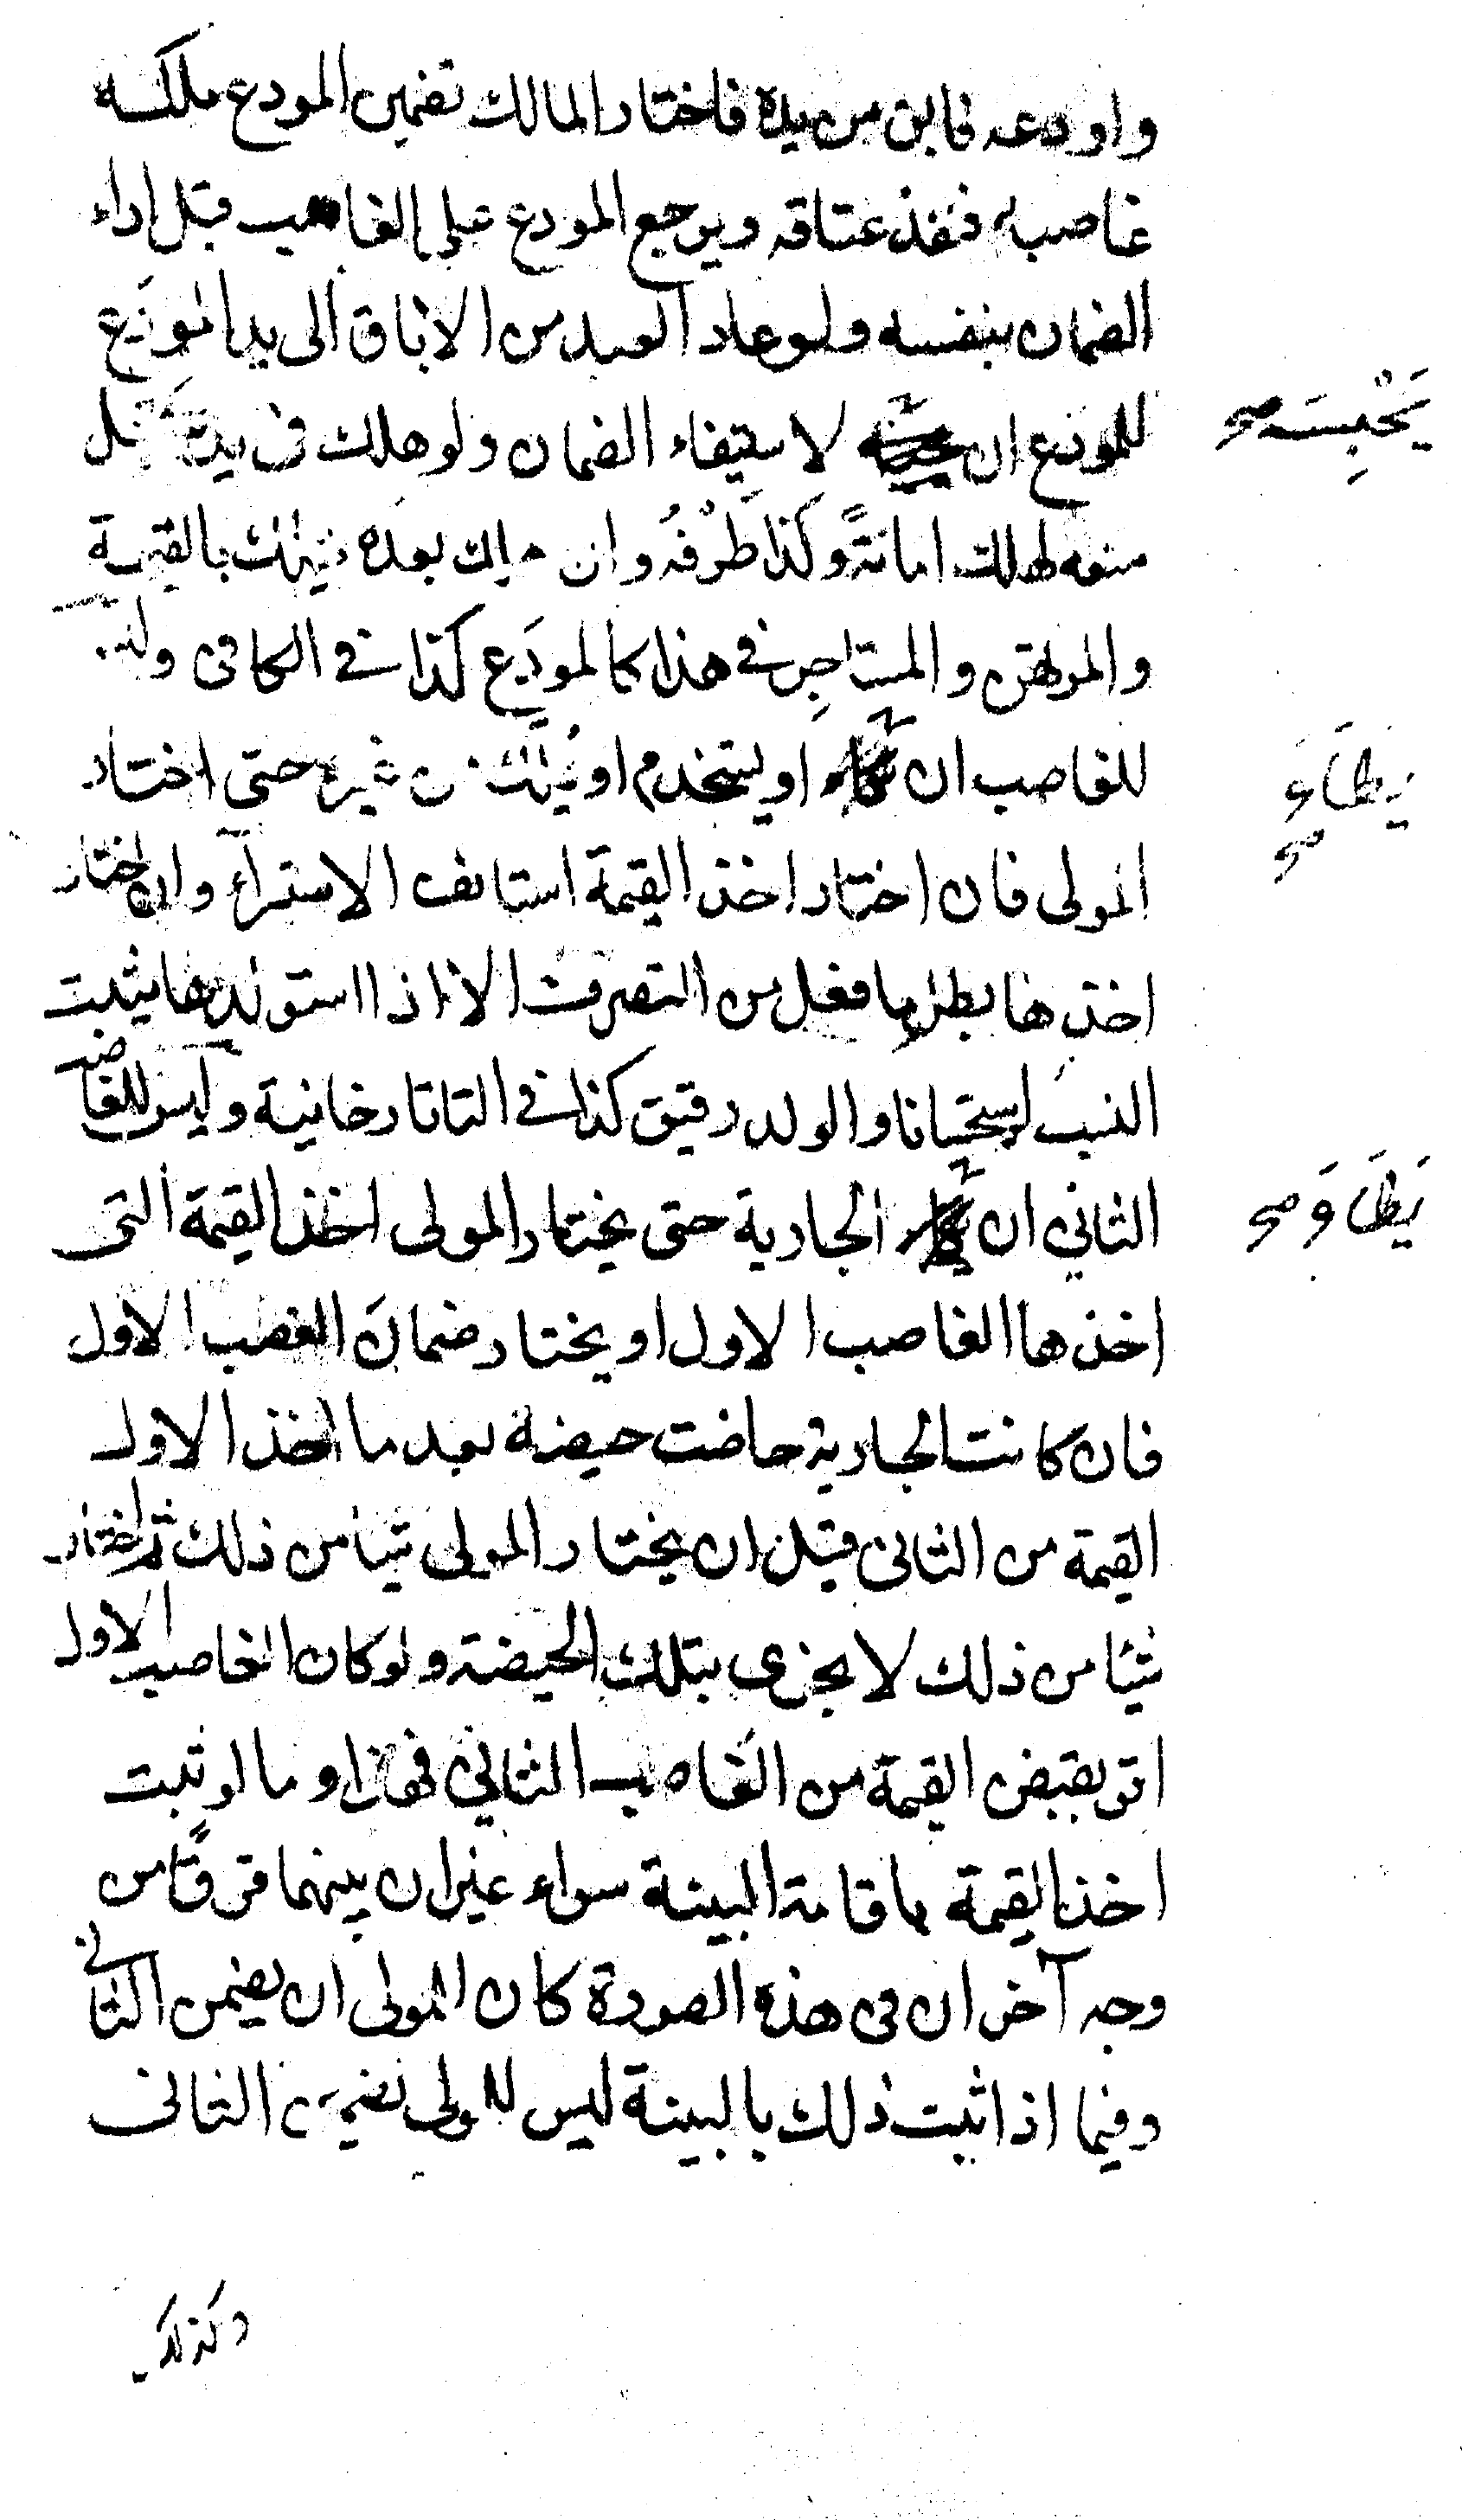 واودعه فابق من يده فاختار المالك تضمين المودع ملكه
غاصبه فنفذ عتاقه ويرجع المودع على الغاصب قبل اداء
الضمان بنفسه ولو عاد العبد من الاباق الى يد المودَع
للمودع ان لاستيفاء الضمان ولو هلك فى يده قبل
يَحْبِسَه صح
منعه لهلك امانةً وكذا طَرْفُه وان هلك بعده يهلك بالقيمة
والمرتهن والمستاجِر فى هذا كالمودَع كذا فى الكافى وليس
للغاصب ان او يستخدم او يملك من غيره حتى اختار
يَطَاءَ صح
المولى فان اختار اخذ القيمة استانف الاستبرآء وان اختار
اخذها بطل ما فعل من التصرف الا اذا استولدها يثبت
النسب استحسانا والولد رقيق كذا فى التاتارخانية وليس للغاصب
الثانى ان الجارية حتى يختار المولى اخذ القيمة التى
يَطَاوَ صح
اخذها الغاصب الاول او يختار ضمانَ الغصب الاول
فان كانت الجارية حاضت حيضة بعد ما اخذ الاول
القيمة من الثانى قبل ان يختار المولى شيئا من ذلك ثم اختار
شيئا من ذلك لا يجزى بتلك الحيضة ولو كان الغاصب الاول
اقر بقبض القيمة من الغاصب الثانى فهذا وما لو ثبت
اخذ القيمة باقامة البينة سواء غير ان بينهما فرقًا من
وجه آخر ان فى هذه الصورة كان للمولى ان يضمن الثانى
وفيما اذا ثبت ذلك بالبينة ليس للمولى تضمين الثانى
وكذلك